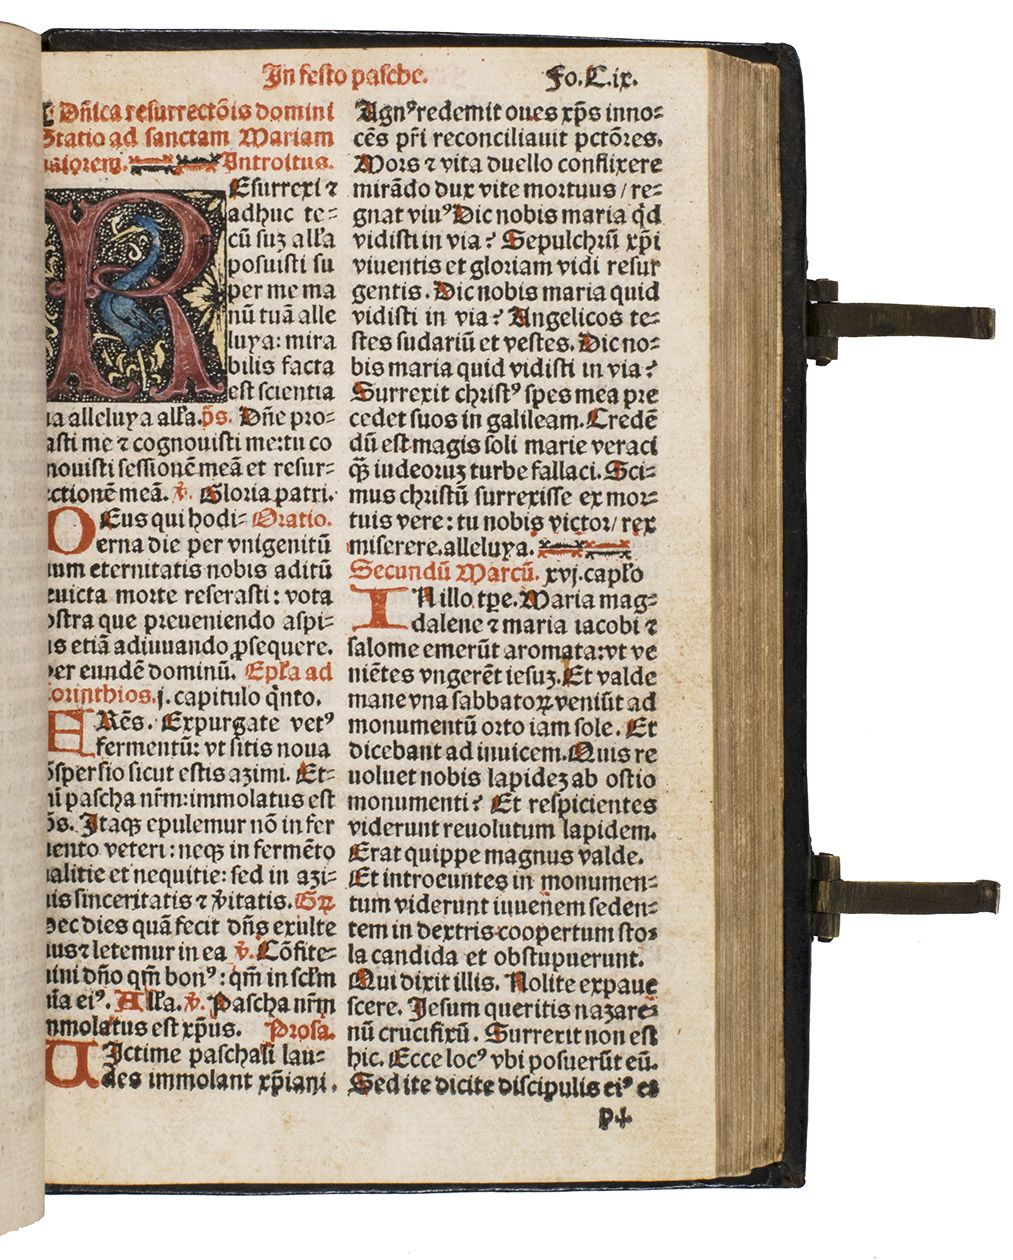 In festo pasche. Fo.C.ix.
Dñica resurrectõis domini
Statio ad sanctam Mariam
maiorem. Introitus.
REsurrexi ⁊
adhuc te⸗
cũ suꝫ alľa
posuisti su
per me ma
nũ tuã alle
luya: mira
bilis facta
est scientia
ua alleluya alľa. p̃s. Dñe pro⸗
asti me ⁊ cognouisti me: tu co
nouisti sessionẽ meã et resur⸗
ectionẽ meã. ℣. Gloria patri.
DEus qui hodi⸗ Oratio.
erna die per vnigenitũ
uum eternitatis nobis aditũ
euicta morte reserasti: vota
ostra que preueniendo aspi⸗
is etiã adiuuando ꝓsequere.
per eundẽ dominũ. Epľa ad
corinthios. j. capitulo q̃nto.
FRẽs. Expurgate vetꝰ
fermentũ: vt sitis noua
õspersio sicut estis azimi. Et⸗
nĩ pascha nr̃m: immolatus est
p̃s. Itaqꝫ epulemur nõ in fer
mento veteri: neqꝫ in fermẽto
alitie et nequitie: sed in azi⸗
is sinceritatis ⁊ ṽitatis. Gꝛ̃.
Hec dies quã fecit dñs exulte
us ⁊ letemur in ea ℣. Cõfite⸗
ini dño qm̃ bonꝰ: qm̃ in sclm̃
mĩa eiꝰ. Alľa. ℣. Pascha nr̃m
mmolatus est xp̃us. Prosa.
UIctime paschali lau⸗
des immolant xp̃iani.
Agnꝰ redemit oues xp̃s inno⸗
cẽs pr̃i reconciliauit pctõres.
Mors ⁊ vita duello conflixere
mirãdo dux vite mortuus / re⸗
gnat viuꝰ Dic nobis maria q̃d
vidisti in via? Sepulchrũ xp̃i
viuentis et gloriam vidi resur
gentis. Dic nobis maria quid
vidisti in via? Angelicos te⸗
stes sudariũ et vestes. Dic no⸗
bis maria quid vidisti in via?
Surrexit christꝰ spes mea pre
cedet suos in galileam. Credẽ
dũ est magis soli marie veraci
q̃ꝫ iudeoruꝫ turbe fallaci. Sci⸗
mus christũ surrexisse ex mor⸗
tuis vere: tu nobis victor / rex
miserere. alleluya.
Secundũ Marcũ. xvj. capľo
IN illo tp̃e. Maria mag⸗
dalene ⁊ maria iacobi ⁊
salome emerũt aromata: vt ve
niẽtes vngerẽt iesuꝫ. Et valde
mane vna sabbatoꝝ veniũt ad
monumentũ orto iam sole. Et
dicebant ad inuicem. Quis re
uoluet nobis lapideꝫ ab ostio
monumenti? Et respicientes
viderunt reuolutum lapidem.
Erat quippe magnus valde.
Et introeuntes in monumen⸗
tum viderunt iuuenem seden⸗
tem in dextris coopertum sto⸗
la candida et obstupuerunt.
Qui dixit illis. Nolite expaue
scere. Jesum queritis nazare⸗
nũ crucifixũ. Surrexit non est
hic. Ecce locꝰ vbi posuerũt eũ.
Sed ite dicite discipulis eiꝰ et